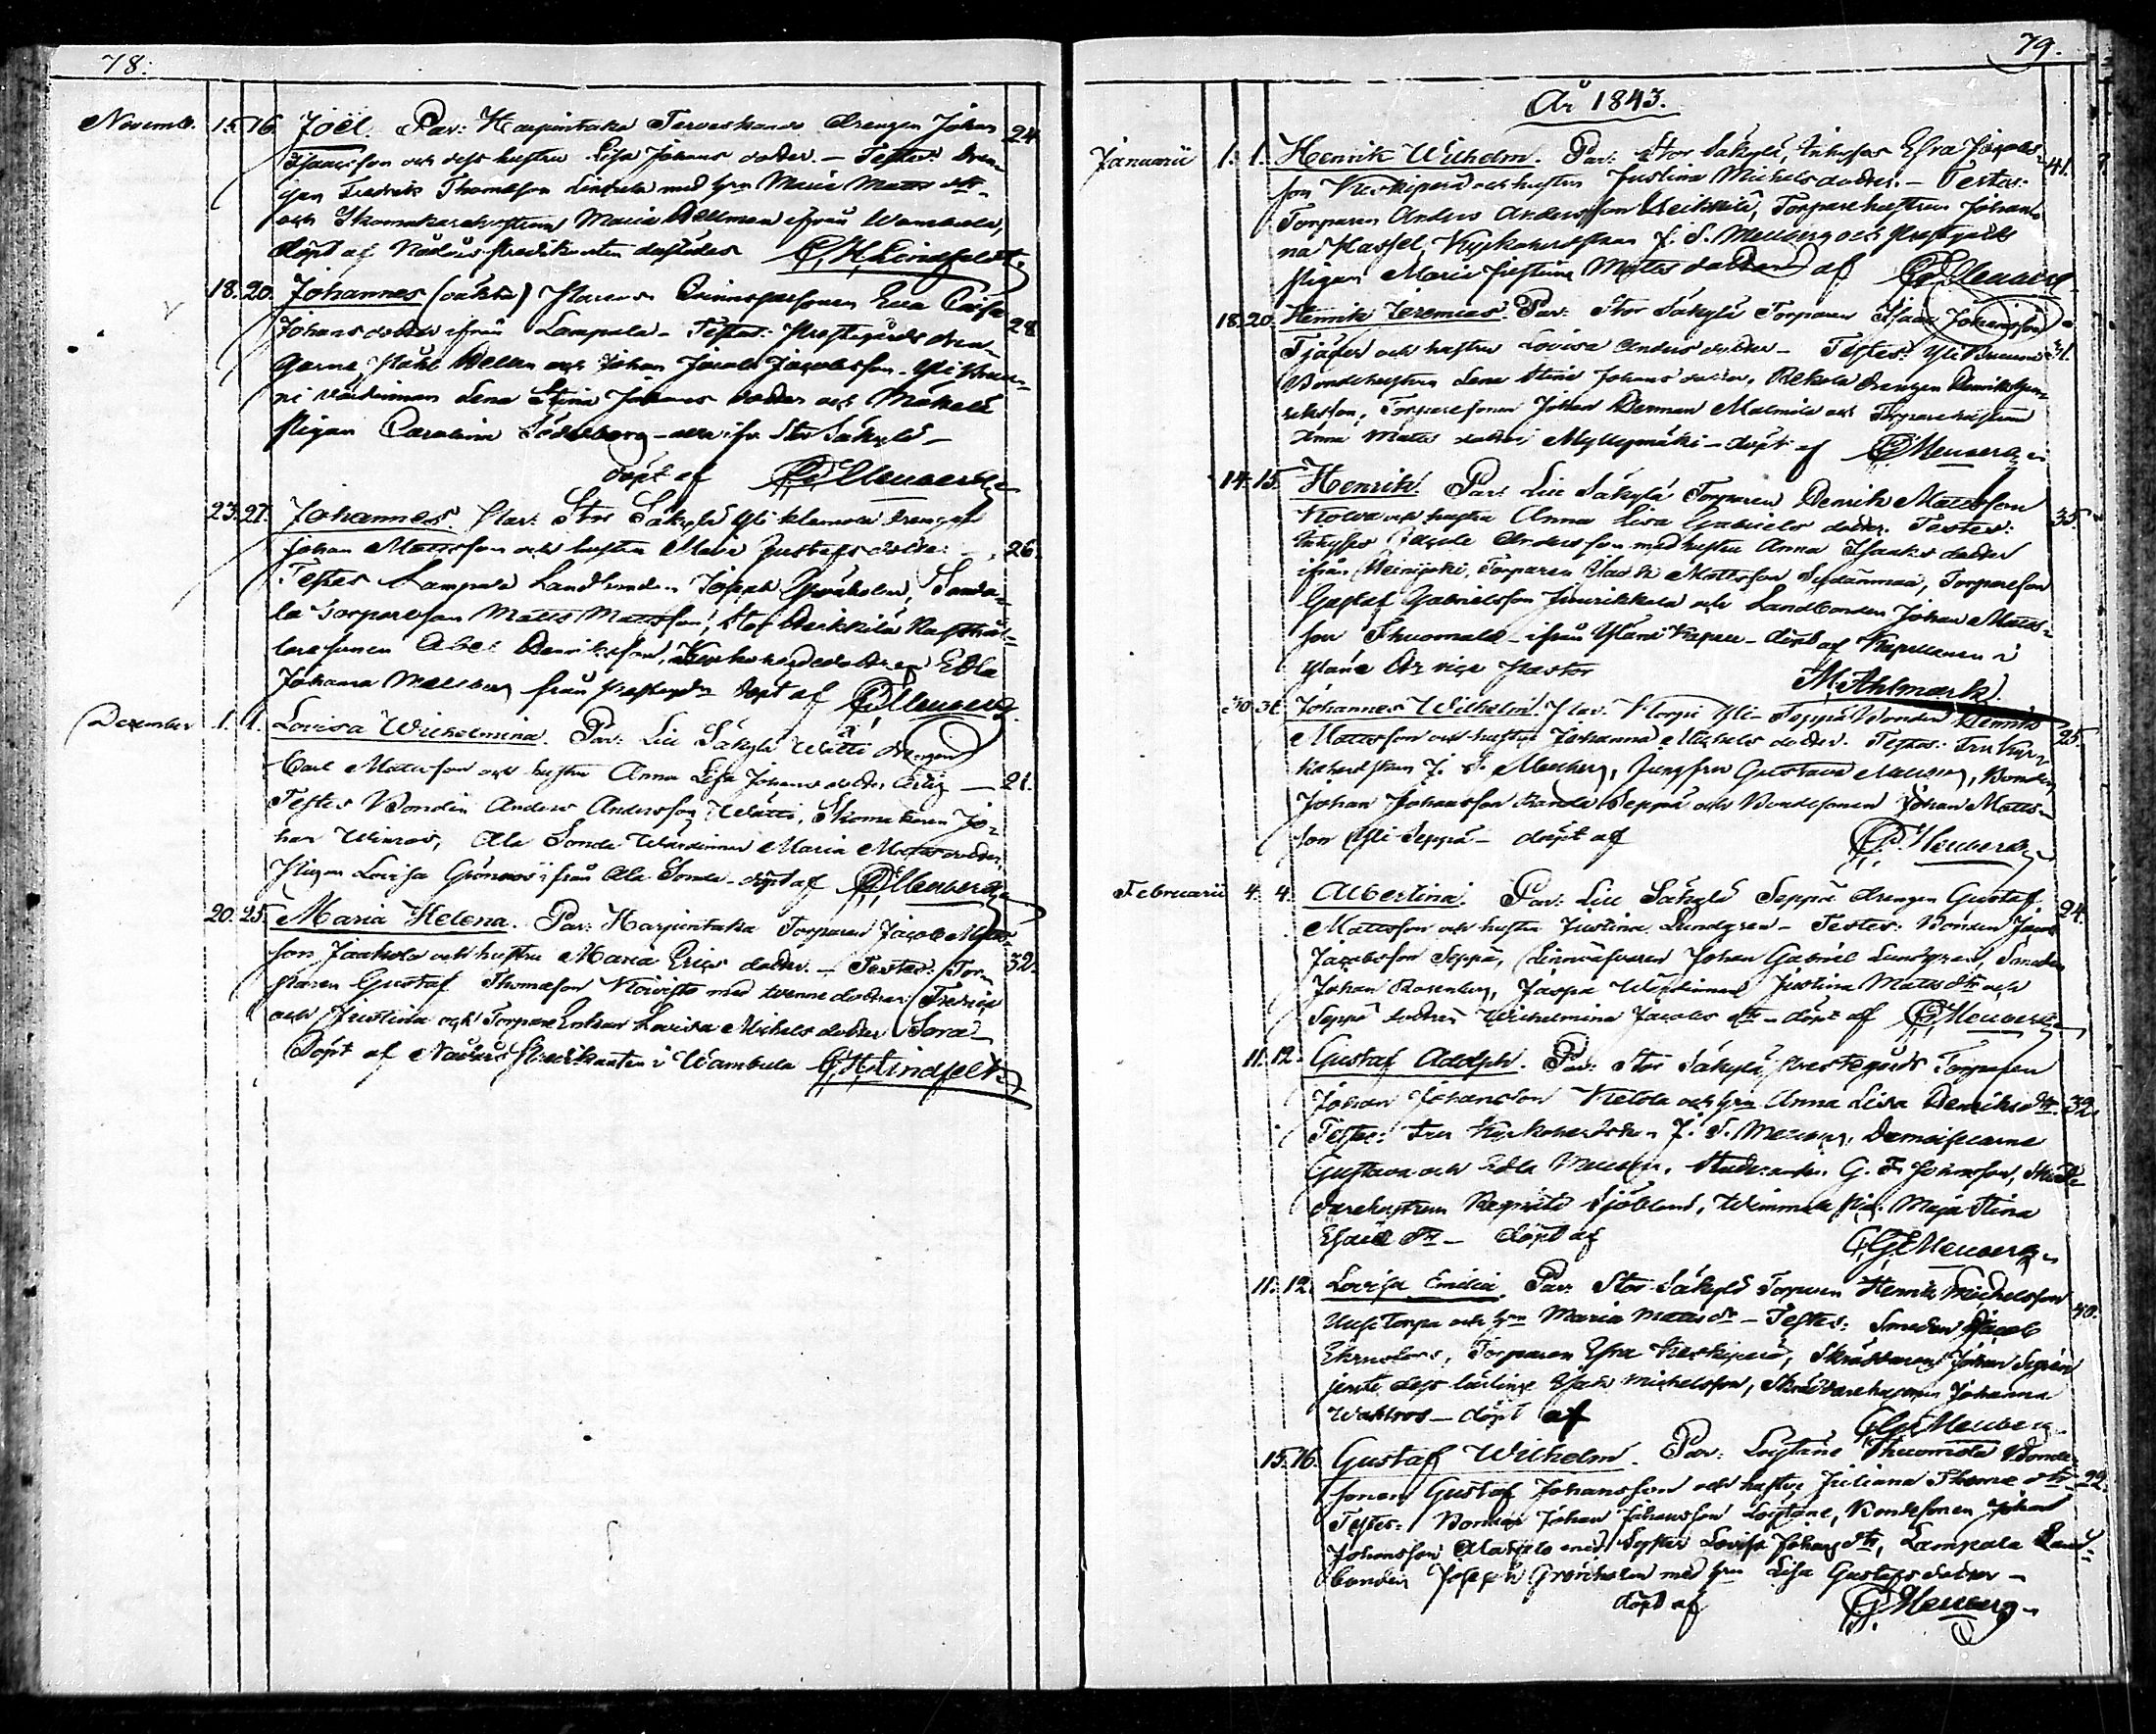 78.
Novemb. 15. 16. Joël. Par: Harpintaka Torvoskans drengen Johan 24
Isaacsson och dess hustru Lisa Johans dotter. — Testes: Dren-
gen Fredrik Thomasson med hrn Maria Matts dtr
och Skomakarehustrun Maria Hellman ifrån Wambula,
döpt af Nådårs Predikanten dersädes C. H. Lindfeldt.
18. 20. Johannes (oäkta) Qvinspersonen Eva Caisa
Johans dotter ifrån Lampula - Testes: Prestegårds dren- 28.
garne, och Johan Jacob Jacobsson. Yli
ni värdinnan Lena Stina Johans dotter och Mäkelä
Pigan Carolina Söderborg - alla ifr. Stor Säkylä -
döpt af Meuberg
23. 27. Johannes. Par: Stor Säkylä Yli klemola drengen
Johan Mattsson och hustru Maria Gustafs dotter - 26.
Testes Lampola Landbonden Joseph Grönholm, Sonda-
la Torparesson Matts Mattsson, Stor Heikkilä
laresonen Abel Henriksson, Edla
Johanna Meuberg från Prestegrd döpt af Meuberg
December 1. 1. Lovisa Wilhelmina. Par: Lill Säkylä Wätti drengen
Carl Mattsson och hustru Anna Lisa Johans dotter — 21.
Testes Bonden Anders Andersson Wätti, Skomakaren Jo-
han Winroos, Ala Sonda Wärdinnan Maria Matts dotter,
Pigan Lovisa Grönroos ifrån Ala Sonda - döpt af Meuberg
20. 25. Maria Helena. Par: Harpintaka Torparen Jacob Matts-
son Jaakola och hustru Maria Erics dotter. — Testes: Tor- 32.
paren Gustaf Thomasson Koivisto med tvenne döttrar Fredrica
och Justina och Torpare Enkan Lovisa Michels dotter Sora -
Döpt af Nådårs Predikanten i Wambula C. H. Lindfelt
79.
År 1843.
Januarii 1. 1. Henrik Wilhelm. Par: Stor Säkylä, Inhyses Efra Jacobs- 41.
son Keskiperä och hustru Justina Michels dotter. — Testes:
Torparen Anders Andersson Heikkilä, Torparehustrun Johan-
na Hassel, Kyrkoherdskan J. S. Meuberg och Prestgårds
Pigan Maria Mattsdotter af Meuberg
18. 20. Henrik Jeremias. Par: Stor Säkylä Torparen Isaac Johansson
Tjäder och hustru Lovisa Anders dotter - Testes: Yli 31.
Bondehustrun Lena Stina Johans dotter, Rekola drengen Henrik Hen-
riksson, Torparesonen Johan Herman Malmila och Torparehustrun
Anna Matts dotter Myllymäki - döpt af Meuberg
14. 15. Henrik. Par: Lill Säkylä Torparen Henrik Mattsson
och hustru Anna Lisa Gabriels dotter. Testes: 35.
Inhyses Jacob Andersson med hustru Anna Isaks dotter
ifrån Heinijoki, Torparen Isak Mattsson Sydänmaa, Torpareson
Gustaf Gabrielsson Junnikkala och Landbonden Johan Matts-
son Thuomala - ifrån Yläne Kapell - döpt af Kapellanen i
Yläne Vice Pastor
M. Ahlmark.
30. 31. Johannes Wilhelm. Par. Korpi Yli-Seppä Bonden Henrik
Mattsson och hustru Johanna Michels dotter. Testes: Fru Kyr- 25.
koherdskan J. S. Meuberg, Jungfru Gustava Meuberg, Bonden
Johan Johansson Seppä och Bondesonen Johan Matts-
son Yli Seppä - döpt af Meuberg
Februarii 4. 4. Albertina. Par: Lill Säkylä Seppä drengen Gustaf 24.
Mattsson och hustru Justina Lundgren - Testes: Bonden Jacob
Jacobsson Seppä, Linnväfvaren Johan Gabriel Lundgren, Smeden
Johan Rosenberg, Jaspa Wärdinnan Justina Matts dtr och
Seppä dottren Wilhelmina Jacobs dtr - döpt af Meuberg
11. 12. Gustaf Adolph. Par: Stor Säkylä Prestegårds Torparen
Johan Johansson Ketola och hrn Anna Lisa Henriks dtr 32.
Testes: Fru Kyrkoherdskan J. S. Meuberg, Demoisellerna
Gustava och Edla Meuberg, Studeranden G. F. Johansson, Skräd-
darehustrun Sjöblom, Pig. Maja Stina
Esaias dtr - döpt af G. Meuberg
11. 12. Lovisa Emilia. Par: Stor Säkylä Torparen Henrik Michelsson
Uusitorpa och hrn Maria Matts dtr - Testes: Smeden Jacob 40.
Ehrnroos, Torparen Efra Keskiperä, Skräddaren Johan Segrén
jemte dess lärling Isak Michelsson, Skräddarehustrun Johanna
Wahlroos - döpt af G. Meuberg
15. 16. Gustaf Wilhelm. Par: Löytäne Thuomola Bonde-
sonen Gustaf Johansson och hustru Juliana Thomas dtr 22.
Testes: Bonden Johan Johansson Löytäne, Bondesonen Johan
Johansson med Syster Lovisa Johans dtr, Lampola Land-
bonden Joseph Grönholm med hrn Lisa Gustafs dotter -
döpt af Meuberg